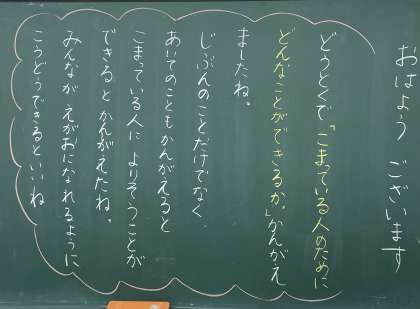 おはよう ございます
どうとくで「こまっている人のために
どんなことができるか。」かんがえ
ましたね。
じぶんのことだけでなく、
あいてのこともかんがえると
こまっている人に よりそうことが
できる とかんがえたね。
みんなが えがおになれるように
こうどうできるといいね